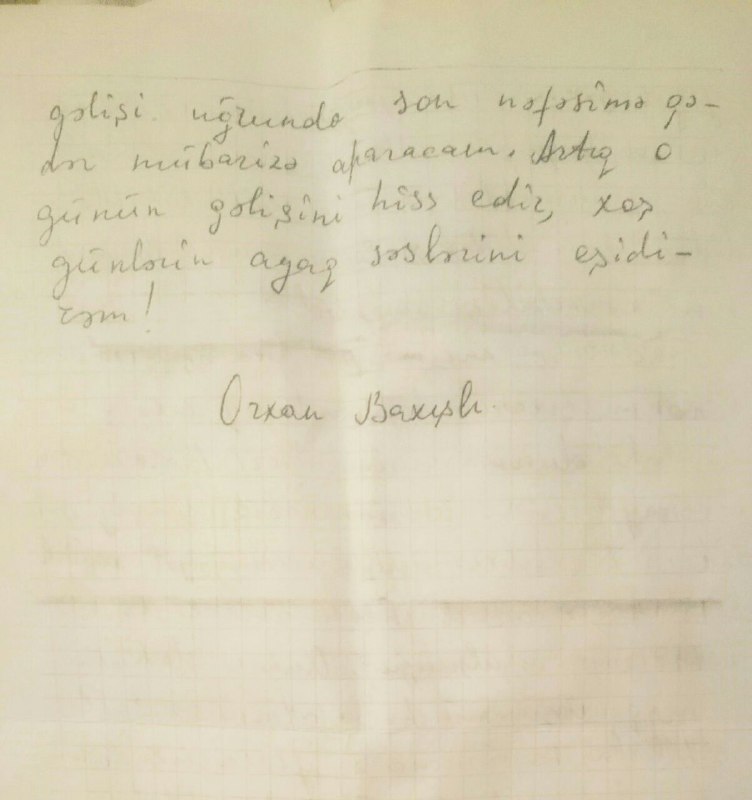 gəlişi uğrunda son nəfəsimə qə-
dər mübarizə aparacam. Artıq o
günün gəlişini hiss edir, xoş
günlərin ayaq səslərini eşidi-
rəm!
Orxan Baxışlı